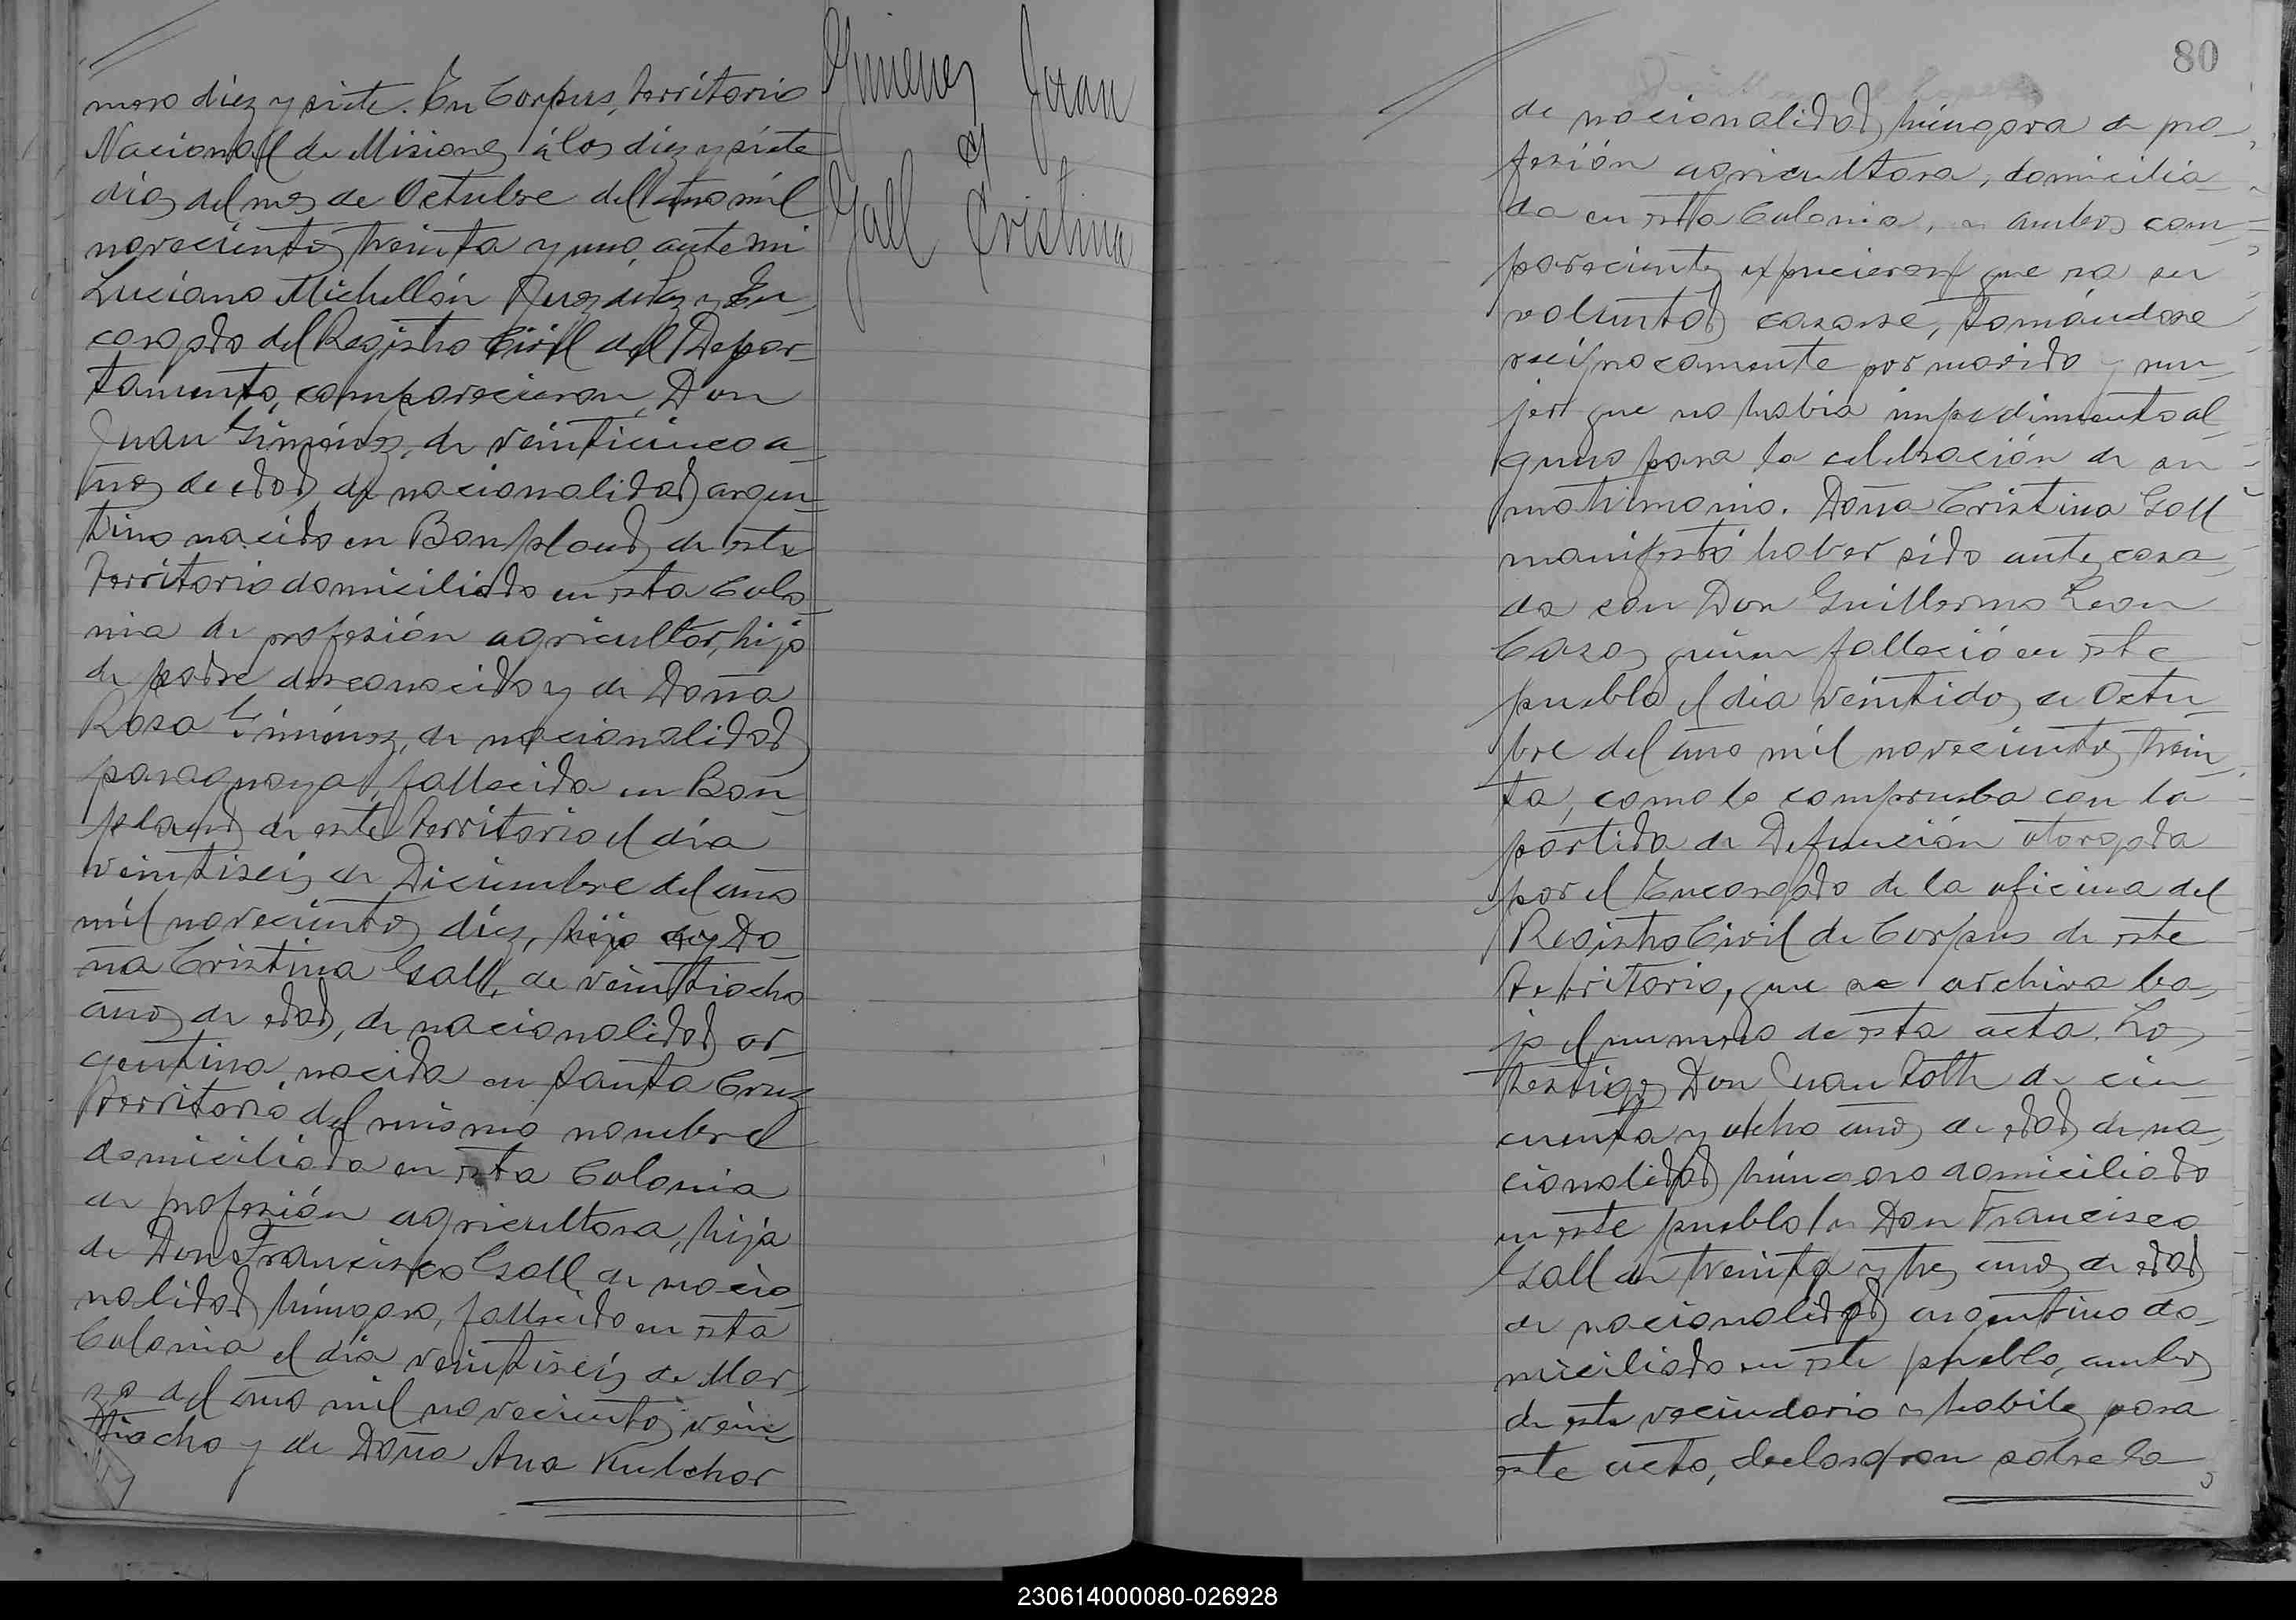 mero diez y siete. En Corpus, territorio
Nacional de Misiones á los diez y siete
dias del mes de Octubre del año mil
novecientos treinta y uno, ante mi
Luciano Michellón Juez de Paz y En-
cargado del Registro Civil del Depar-
tamento, comparecieron, Don
Juan Giménez, de veinticinco a-
ños de edad, de nacionalidad argen-
tino nacido en Bonpland, de este
territorio domiciliado en esta Colo-
nia de profesión agricultor, hijo
de padre desconocido y de Doña
Rosa Giménez, de nacionalidad
paraguaya, fallecida en Bon-
pland de este territorio el día
veintiseis de Diciembre del año
mil novecientos diez, hijo de y Do-
ña Cristina Gall, de veintiocho
años de edad, de nacionalidad ar-
gentina, nacida en Santa Cruz
territorio del mismo nombre
domiciliada en esta Colonia
de profesión agricultora, hija
de Don Francisco Gall de nacio-
nalidad húngara, fallecido en esta
Colonia el día veintiseis de Mar-
zo del año mil novecientos vein-
tiocho y de Doña Ana Kulchar
Gimenez Juan
y
Gall Cristina
80
de nacionalidad húngara de pro-
fesión agricultora, domicilia-
da en esta Colonia, y ambos com-
parecientes expucieron que es su
voluntad casarse, tomándose
recíprocamente por marido y mu-
jer que no habia impedimento al-
guno para la celebración de su
matrimonio. Doña Cristina Gall
manifestó haber sido antes casa-
da con Don Guillermo Leon
Casas quien falleció en este
pueblo el dia veintidos de Octu-
bre del año mil novecientos trein-
ta, como lo comprueba con la
partida de Defunción otorgada
por el Encargado de la oficina del
Registro Civil de Corpus de este
territorio, que se archiva ba-
jo el numero de esta acta. Los
testigos Don Juan Toth de cin-
cuenta y ocho años de edad de na-
cionalidad húngaro domiciliado
en este pueblo y Don Francisco
Gall de treinta y tres años de edad
de nacionalidad argentino do-
miciliado en este pueblo, ambos
de este vecindario y habiles para
este acto, declararon sobre la
230614000080-026928